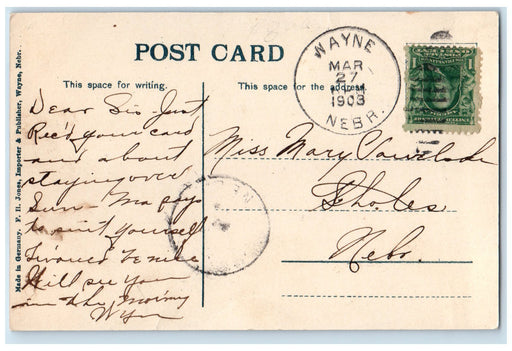 POST CARD
This space for writing.
This space for the address.
WAYNE
MAR
27
1908
NEBR.
Dear Sis Just
Rec'd your card
and about
staying over
Sun. Ma says
to suit yourself
Will see you
in the morning
Miss Mary
Sholes
Nebr.
Made in Germany. F. H. Jones, Importer & Publisher, Wayne, Nebr.